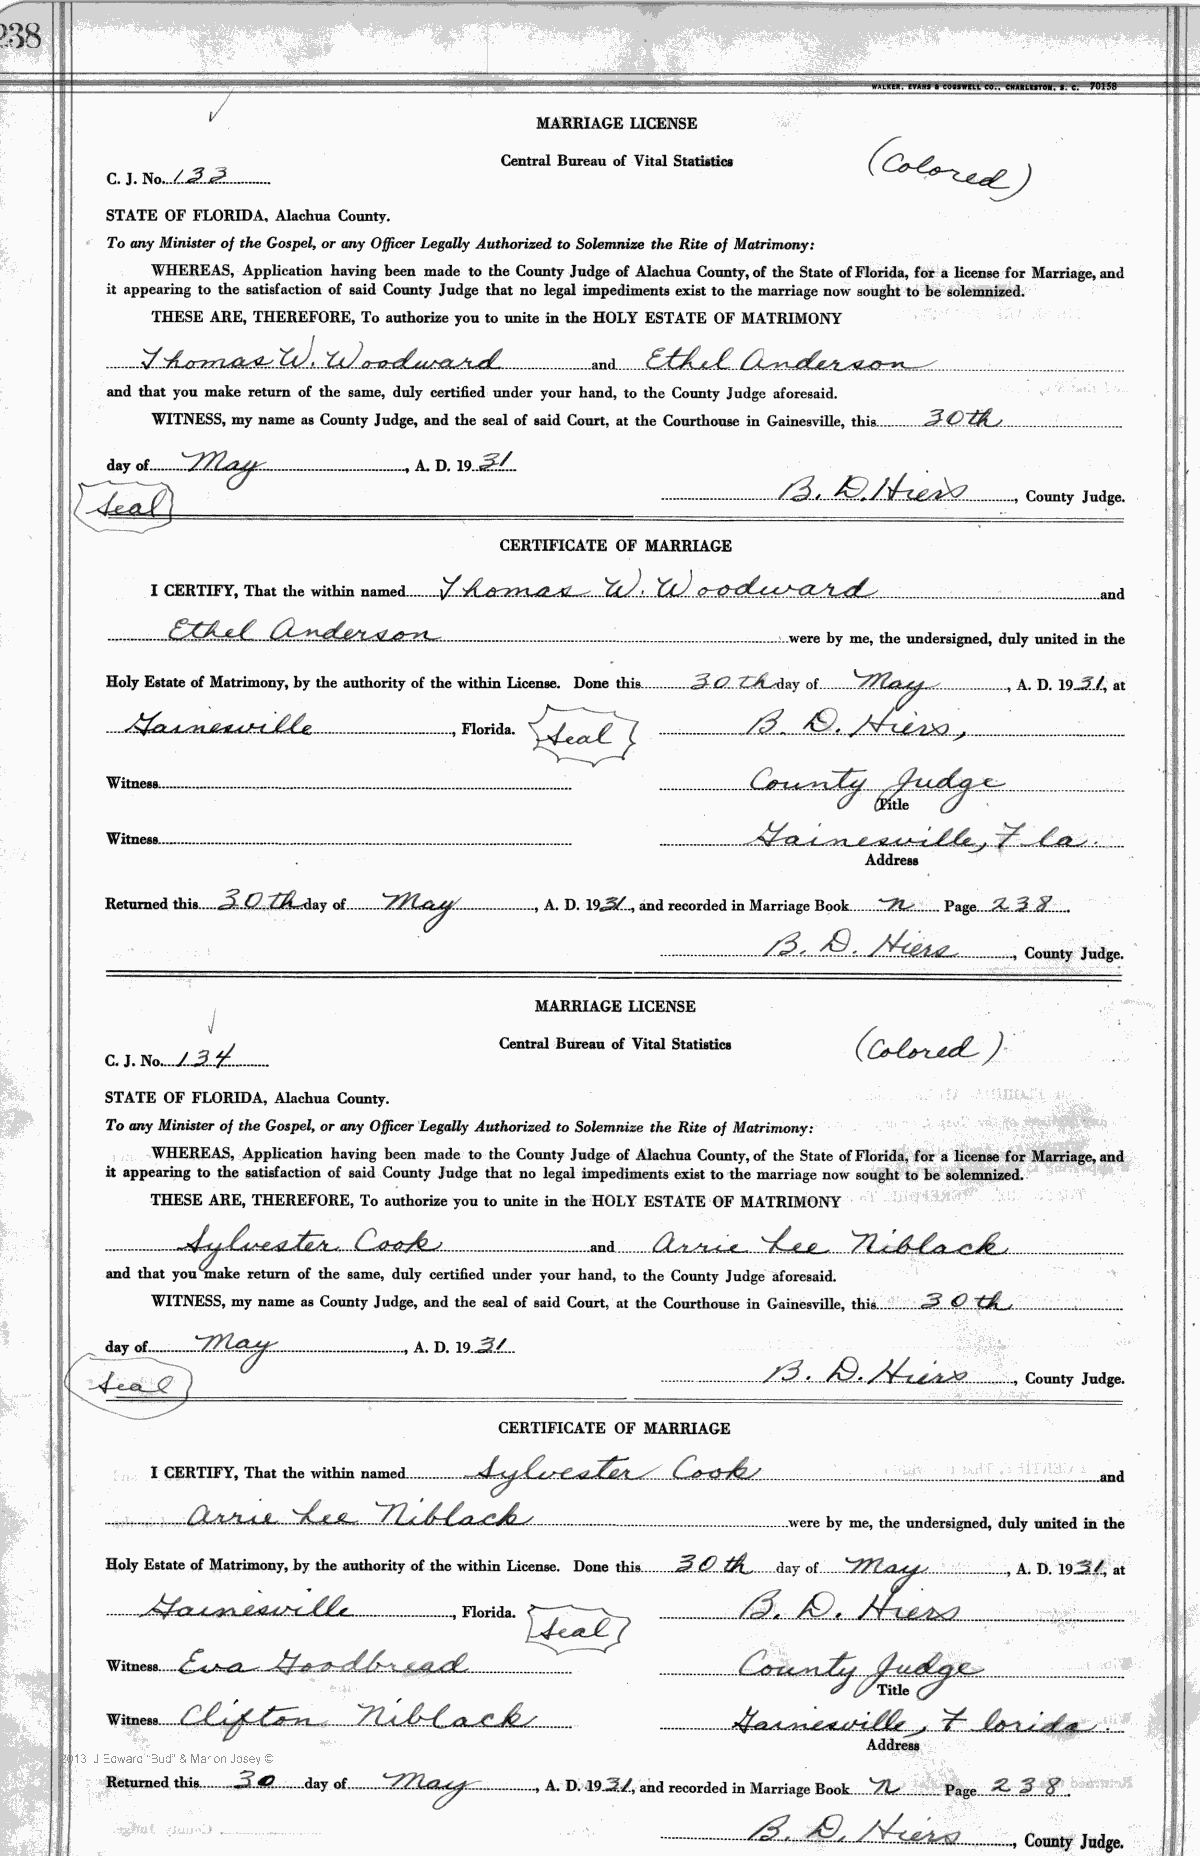 238
WALKER, EVANS & COGSWELL CO., CHARLESTON, S. C. 70158
MARRIAGE LICENSE
Central Bureau of Vital Statistics
(Colored)
C. J. No. 133
STATE OF FLORIDA, Alachua County.
To any Minister of the Gospel, or any Officer Legally Authorized to Solemnize the Rite of Matrimony:
WHEREAS, Application having been made to the County Judge of Alachua County, of the State of Florida, for a license for Marriage, and
it appearing to the satisfaction of said County Judge that no legal impediments exist to the marriage now sought to be solemnized.
THESE ARE, THEREFORE, To authorize you to unite in the HOLY ESTATE OF MATRIMONY
Thomas W. Woodward and Ethel Anderson
and that you make return of the same, duly certified under your hand, to the County Judge aforesaid.
WITNESS, my name as County Judge, and the seal of said Court, at the Courthouse in Gainesville, this 30th
day of May, A. D. 1931
B. D. Hiers, County Judge.
Seal
CERTIFICATE OF MARRIAGE
I CERTIFY, That the within named Thomas W. Woodward and
Ethel Anderson were by me, the undersigned, duly united in the
Holy Estate of Matrimony, by the authority of the within License. Done this 30th day of May, A. D. 1931, at
Gainesville, Florida. Seal B. D. Hiers,
Witness County Judge
Title
Witness Gainesville, Fla.
Address
Returned this 30th day of May, A. D. 1931, and recorded in Marriage Book N Page 238.
B. D. Hiers, County Judge.
MARRIAGE LICENSE
Central Bureau of Vital Statistics (Colored)
C. J. No. 134
STATE OF FLORIDA, Alachua County.
To any Minister of the Gospel, or any Officer Legally Authorized to Solemnize the Rite of Matrimony:
WHEREAS, Application having been made to the County Judge of Alachua County, of the State of Florida, for a license for Marriage, and
it appearing to the satisfaction of said County Judge that no legal impediments exist to the marriage now sought to be solemnized.
THESE ARE, THEREFORE, To authorize you to unite in the HOLY ESTATE OF MATRIMONY
Sylvester Cook and Arrie Lee Niblack
and that you make return of the same, duly certified under your hand, to the County Judge aforesaid.
WITNESS, my name as County Judge, and the seal of said Court, at the Courthouse in Gainesville, this 30th
day of May, A. D. 1931
B. D. Hiers, County Judge.
Seal
CERTIFICATE OF MARRIAGE
I CERTIFY, That the within named Sylvester Cook and
Arrie Lee Niblack were by me, the undersigned, duly united in the
Holy Estate of Matrimony, by the authority of the within License. Done this 30th day of May, A. D. 1931, at
Gainesville, Florida. Seal B. D. Hiers
Witness Eva Goodbread County Judge
Title
Witness Clifton Niblack Gainesville, Florida.
Address
2013 J Edward "Bud" & Marion Josey ©
Returned this 30 day of May, A. D. 1931, and recorded in Marriage Book N Page 238.
B. D. Hiers, County Judge.